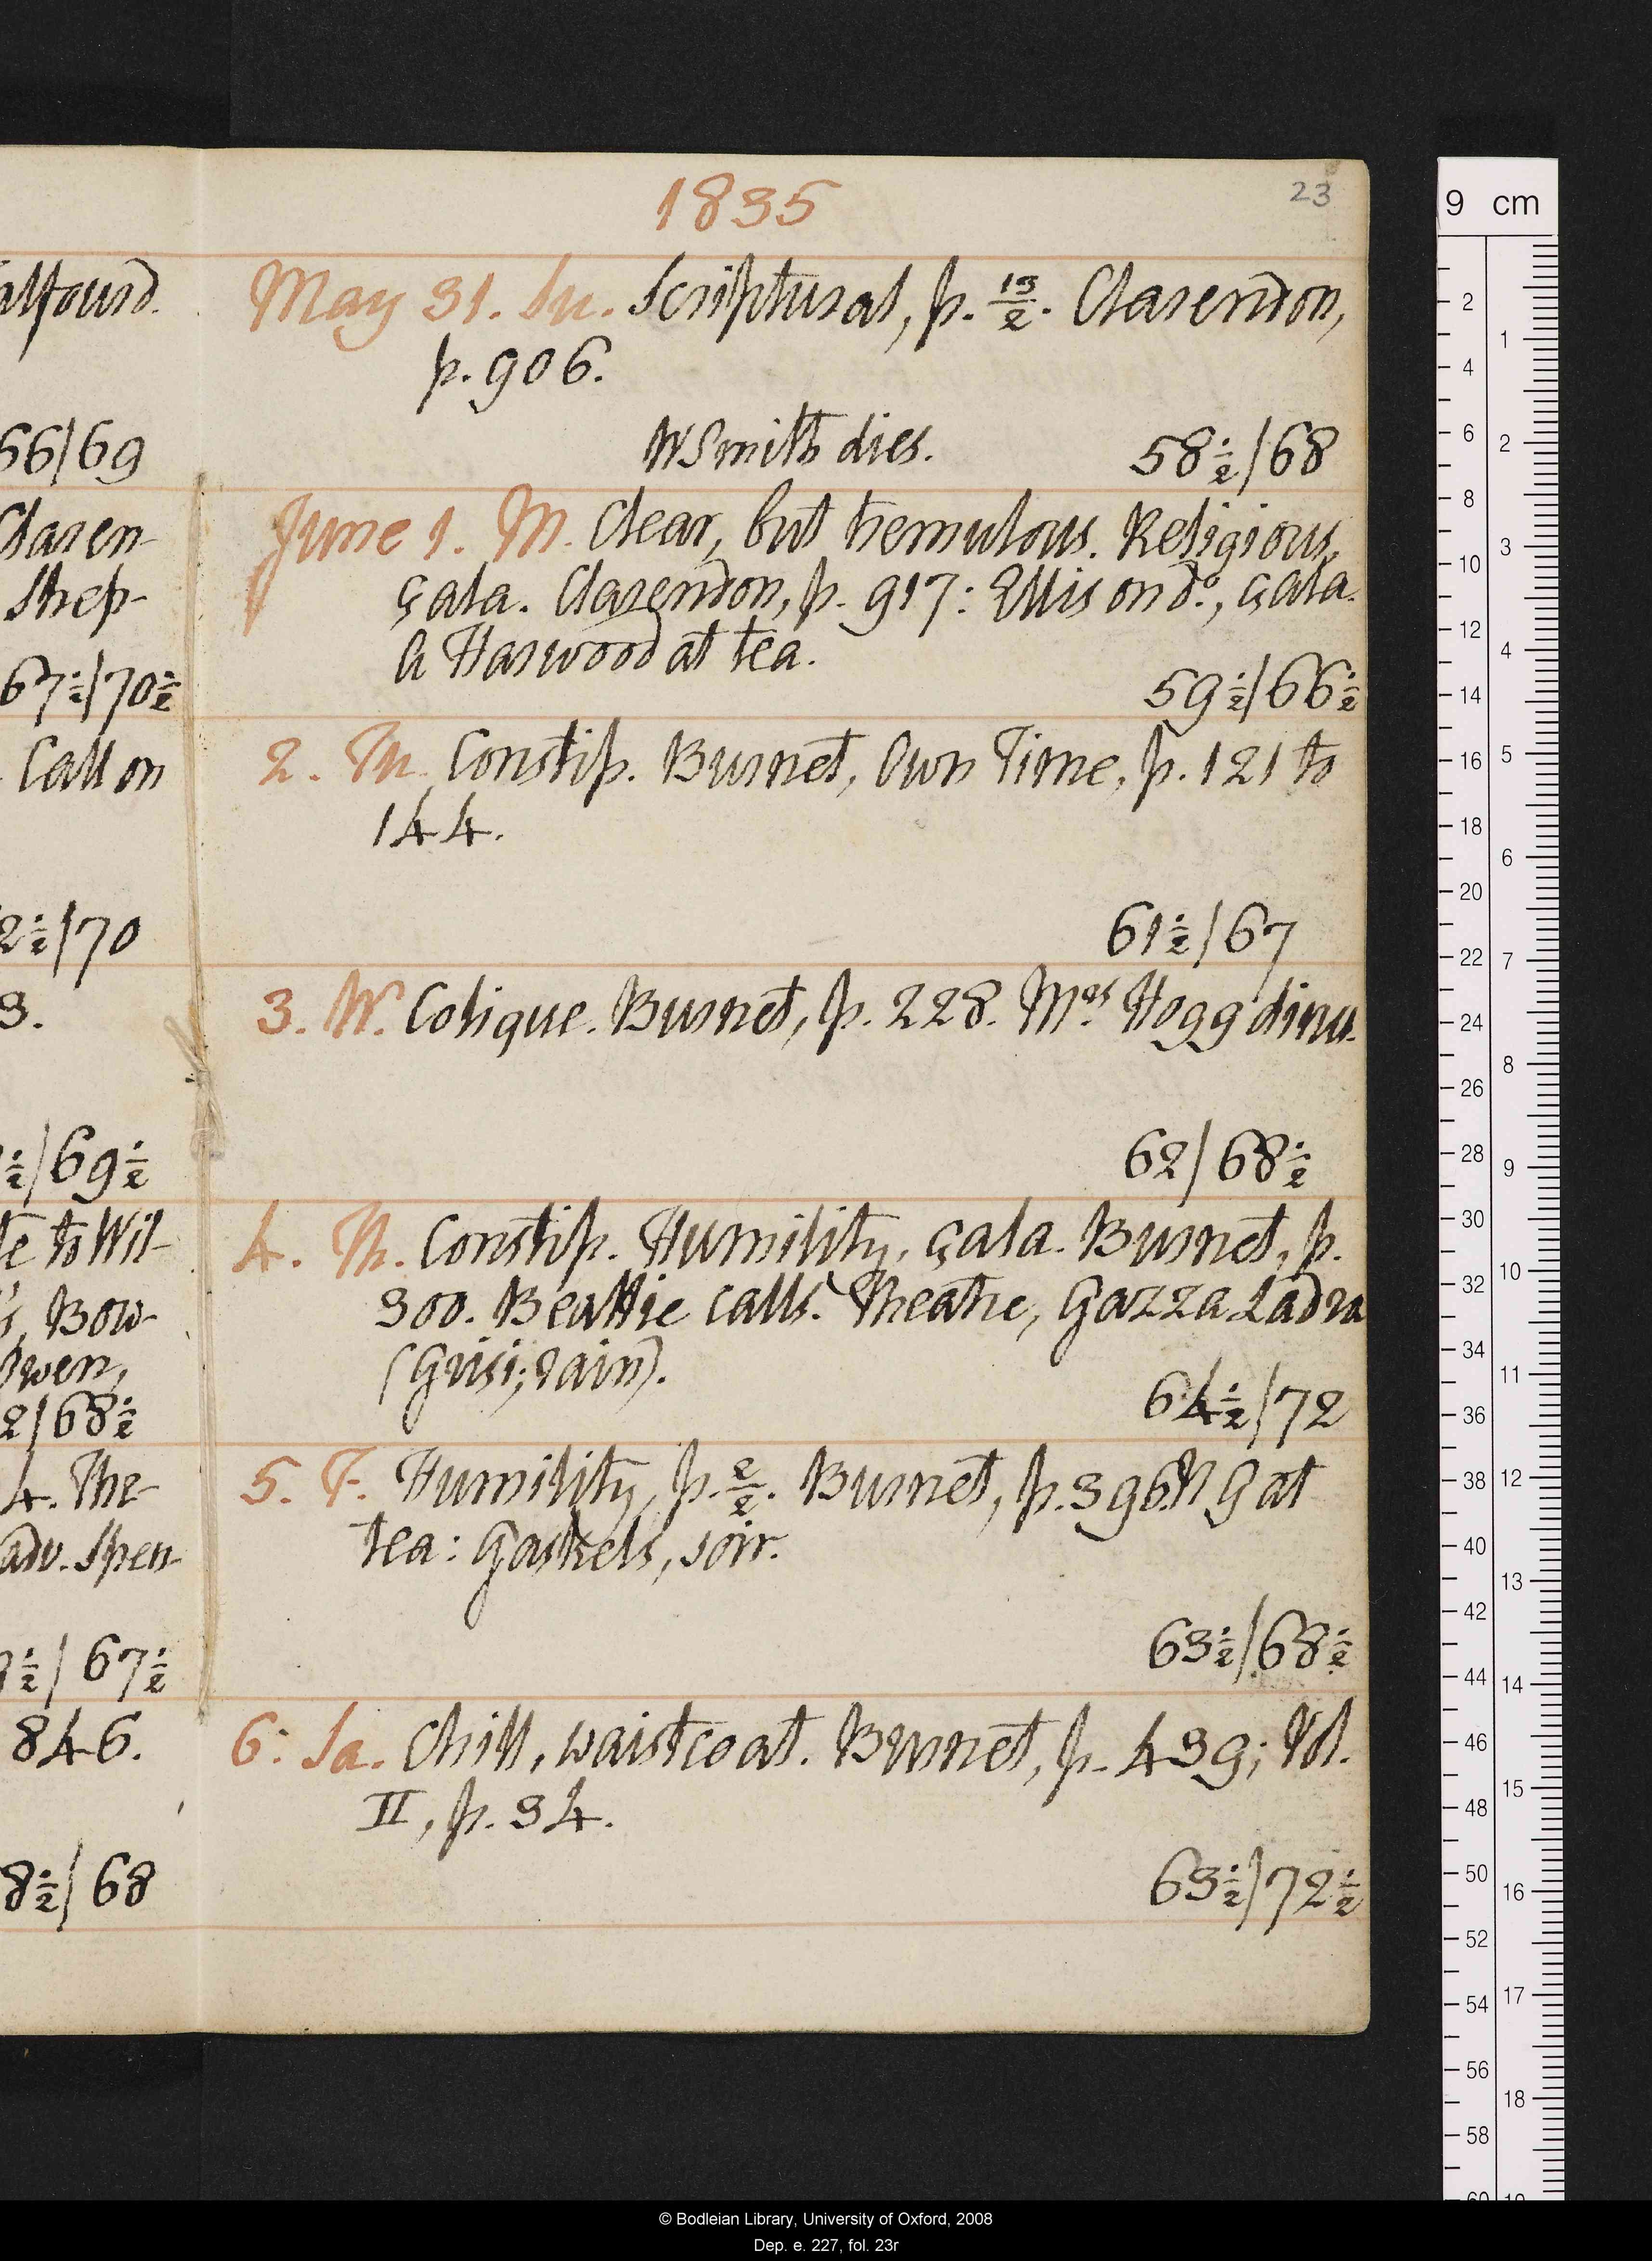 1835
23
alfourd.
56/69
Claren-
Shep-
67½/70½
Call on
2½/70
3.
½/69½
te to Wil-
s, Bow-
Owen,
2/68½
4. The-
adv. Spen-
½/67½
846.
8½/68
May 31. Su. Scriptural, p. 13/2. Clarendon,
p. 906.
W Smith dies. 58½/68
June 1. M. Clear, but tremulous. Religious,
çala. Clarendon, p. 917: Ellis on do., çala.
A Harwood at tea.
59½/66½
2. Tu. Constip. Burnet, Own Time, p. 121 to
144.
61½/67
3. W. Colique. Burnet, p. 228. Mrs Hogg dinu.
62/68½
4. Th. Constip. Humility, çala. Burnet, p.
300. Beattie calls. Theatre, Gazza Ladra
(Grisi; rain).
64½/72
5. F. Humility, p. 2/2. Burnet, p. 396. N G at
tea: Gaskels, soir.
63½/68½
6. Sa. Chill, waistcoat. Burnet, p. 439; Vol.
II, p. 34.
63½/72½
9 cm
2
4
6
8
10
12
14
16
18
20
22
24
26
28
30
32
34
36
38
40
42
44
46
48
50
52
54
56
58
60
1
2
3
4
5
6
7
8
9
10
11
12
13
14
15
16
17
18
19
© Bodleian Library, University of Oxford, 2008
Dep. e. 227, fol. 23r